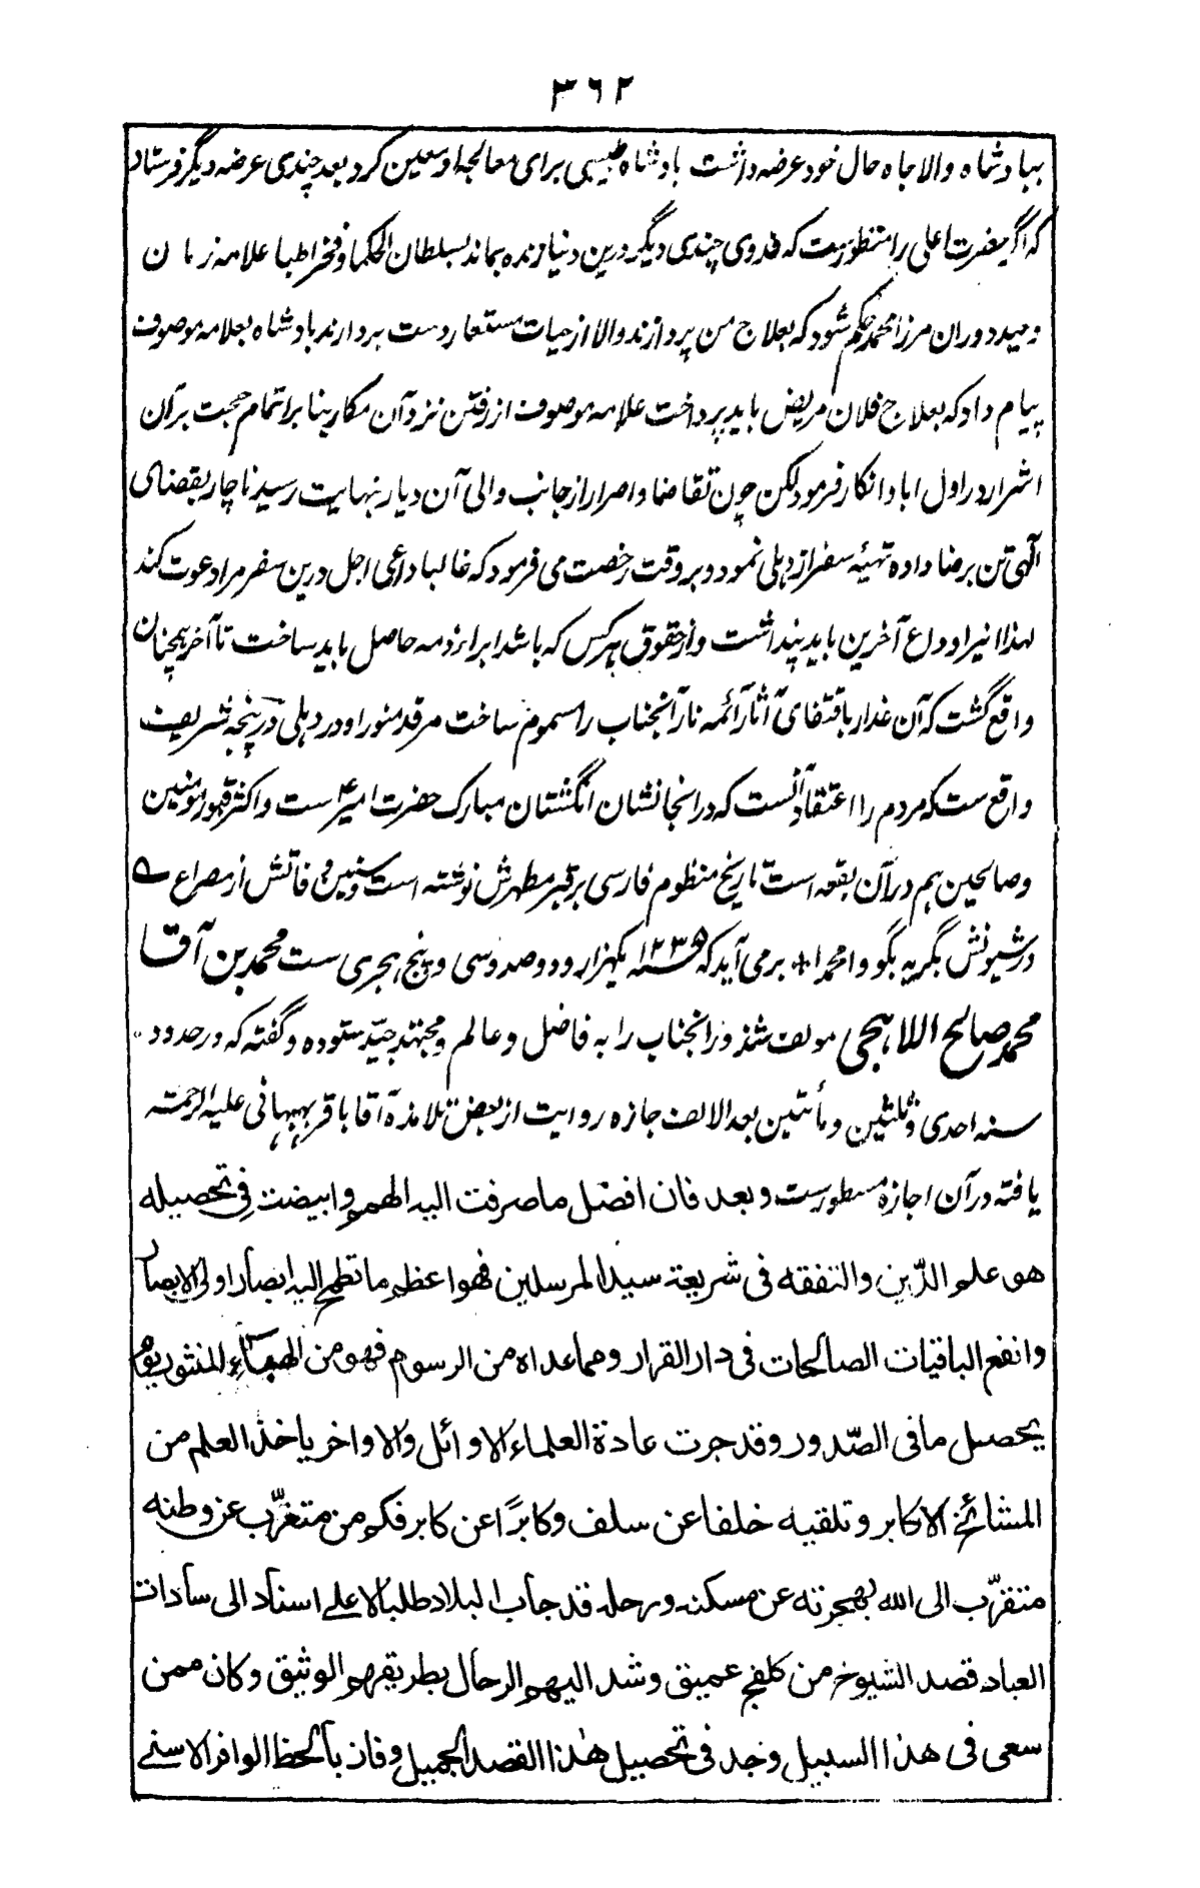 ٣٦٢
ببادشاه والاجاه حال خود عرضه داشت بادشاه طبیبی برای معالجه او معین کرد بعد چندی عرضه دیگر فرستاد
که اگر حضرت اعلی را منظورست که فدوی چندی دیگر درین دنیا زنده بماند بسلطان الحکما و فخر اطبا علامه زمان
وحید دوران مرزا محمد حکم شود که بعلاج من پردازند والا از حیات مستعار دست بردارند بادشاه بعلامه موصوف
پیام داد که بعلاج فلان مریض باید پرداخت علامه موصوف از رفتن نزد آن مکار بنا بر اتمام حجت بر آن
اشرار در اول ابا و انکار فرمود لکن چون تقاضا و اصرار از جانب والی آن دیار بنهایت رسید ناچار بقضای
الهی تن برضا داده تهیه سفر از دهلی نمود و بر وقت رخصت می فرمود که غالبا داعی اجل درین سفر مرا دعوت کند
لهذا اینرا وداع آخرین باید پنداشت و از حقوق هر کس که باشد ابراء ذمه حاصل باید ساخت تا آخر همچنان
واقع گشت که آن غدار باقتفای آثار آئمه نار آنجناب را مسموم ساخت مرقد منور او در دهلی در پنجه شریف
واقع ست که مردم را اعتقاد آنست که در انجا نشان انگشتان مبارک حضرت امیرؑ است و اکثر قبور مومنین
وصالحین هم در آن بقعه است تاریخ منظوم فارسی بر قبر مطهرش نوشته است و سنین وفاتش از مصراع ے
در شیونش بگریه بگو وا محمدا + بر می آید که سنه ١٢٣٥ یکهزار و دو صد و سی و پنج هجری ست محمد بن آقا
محمد صالح اللاهجی مولف شذور آنجناب را به فاضل و عالم و مجتهد جیّد ستوده و گفته که در حدود
سنه احدی و ثلثین و مأتین بعد الالف اجازه روایت از بعض تلامذه آقا باقر بهبهانی علیه الرحمة
یافته در آن اجازه مسطورست وبعد فان افضل ما صرفت الیه الهمم وابیضت فی تحصیله
هو علم الدّین والتفقه فی شریعة سید المرسلین فهو اعظم ما تطمح الیه ابصار اولی الابصار
وانفع الباقیات الصالحات فی دار القرار وما عداه من الرسوم فهو من الهباء المنثور یوم
یحصل ما فی الصّدور وقد جرت عادة العلماء الاوائل والاواخر یاخذ العلم من
المشائخ الاکابر وتلقیه خلفا عن سلف وکابرًا عن کابر فکم من متغرّب عن وطنه
متقرّب الی الله بهجرته عن مسکنه ورحله قد جاب البلاد طلبا لاعلے اسناد الی سادات
العباد قصد الشیوخ من کل فج عمیق وشد الیهم الرحال بطریقهم الوثیق وکان ممن
سعی فی هذا السبیل وجد فی تحصیل هذا القصد الجمیل وفاز بالحظ الوافر الاسنے